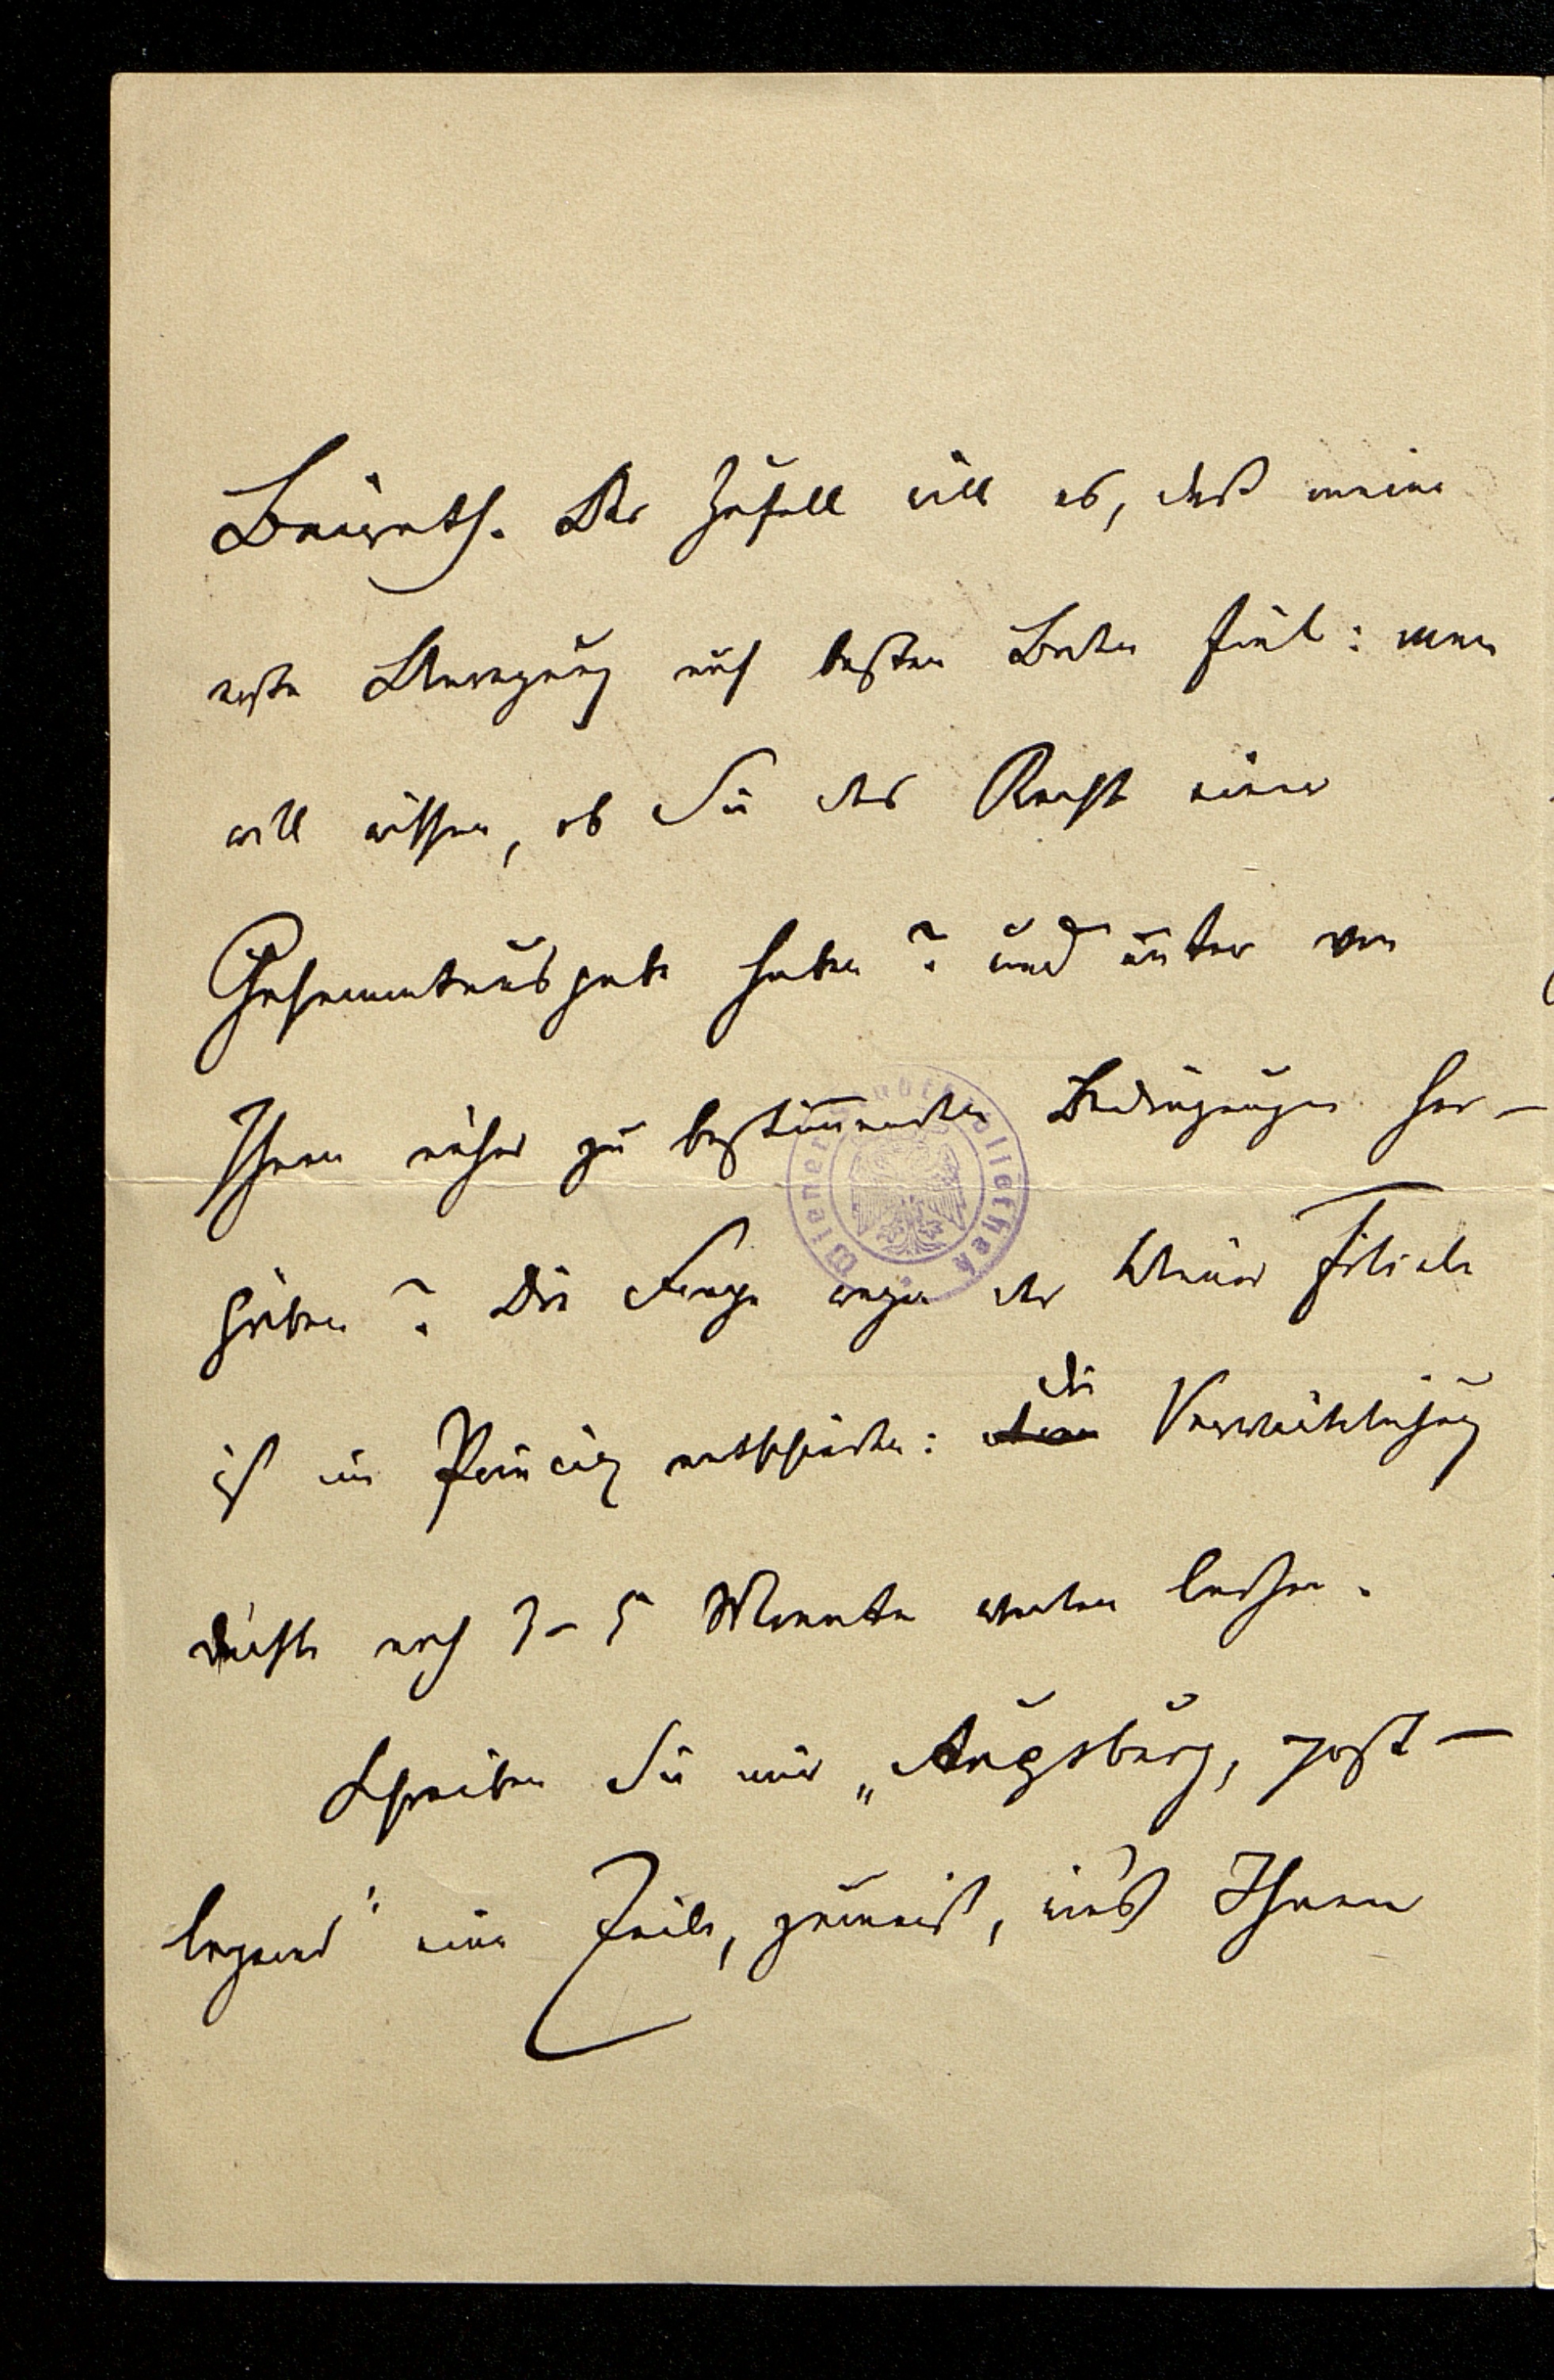 Baireuth. Der Zufall will es, daß meine
erste Anregung auf besten Boden fiel: man
will wissen, ob Sie das Recht einer
Gesammtausgabe haben? und unter von
Ihnen näher zu bestimmenden Bedingungen her-
geben? Die Frage wegen der Wiener Filiale
ist im Princip entschieden: die Verwirklichung
dürfte noch 3-5 Monate warten lassen.
Schreiben Sie mir „Augsburg, post-
lagernd" eine Zeile, zumeist, was Ihnen
Wiener Stadtbibliothek